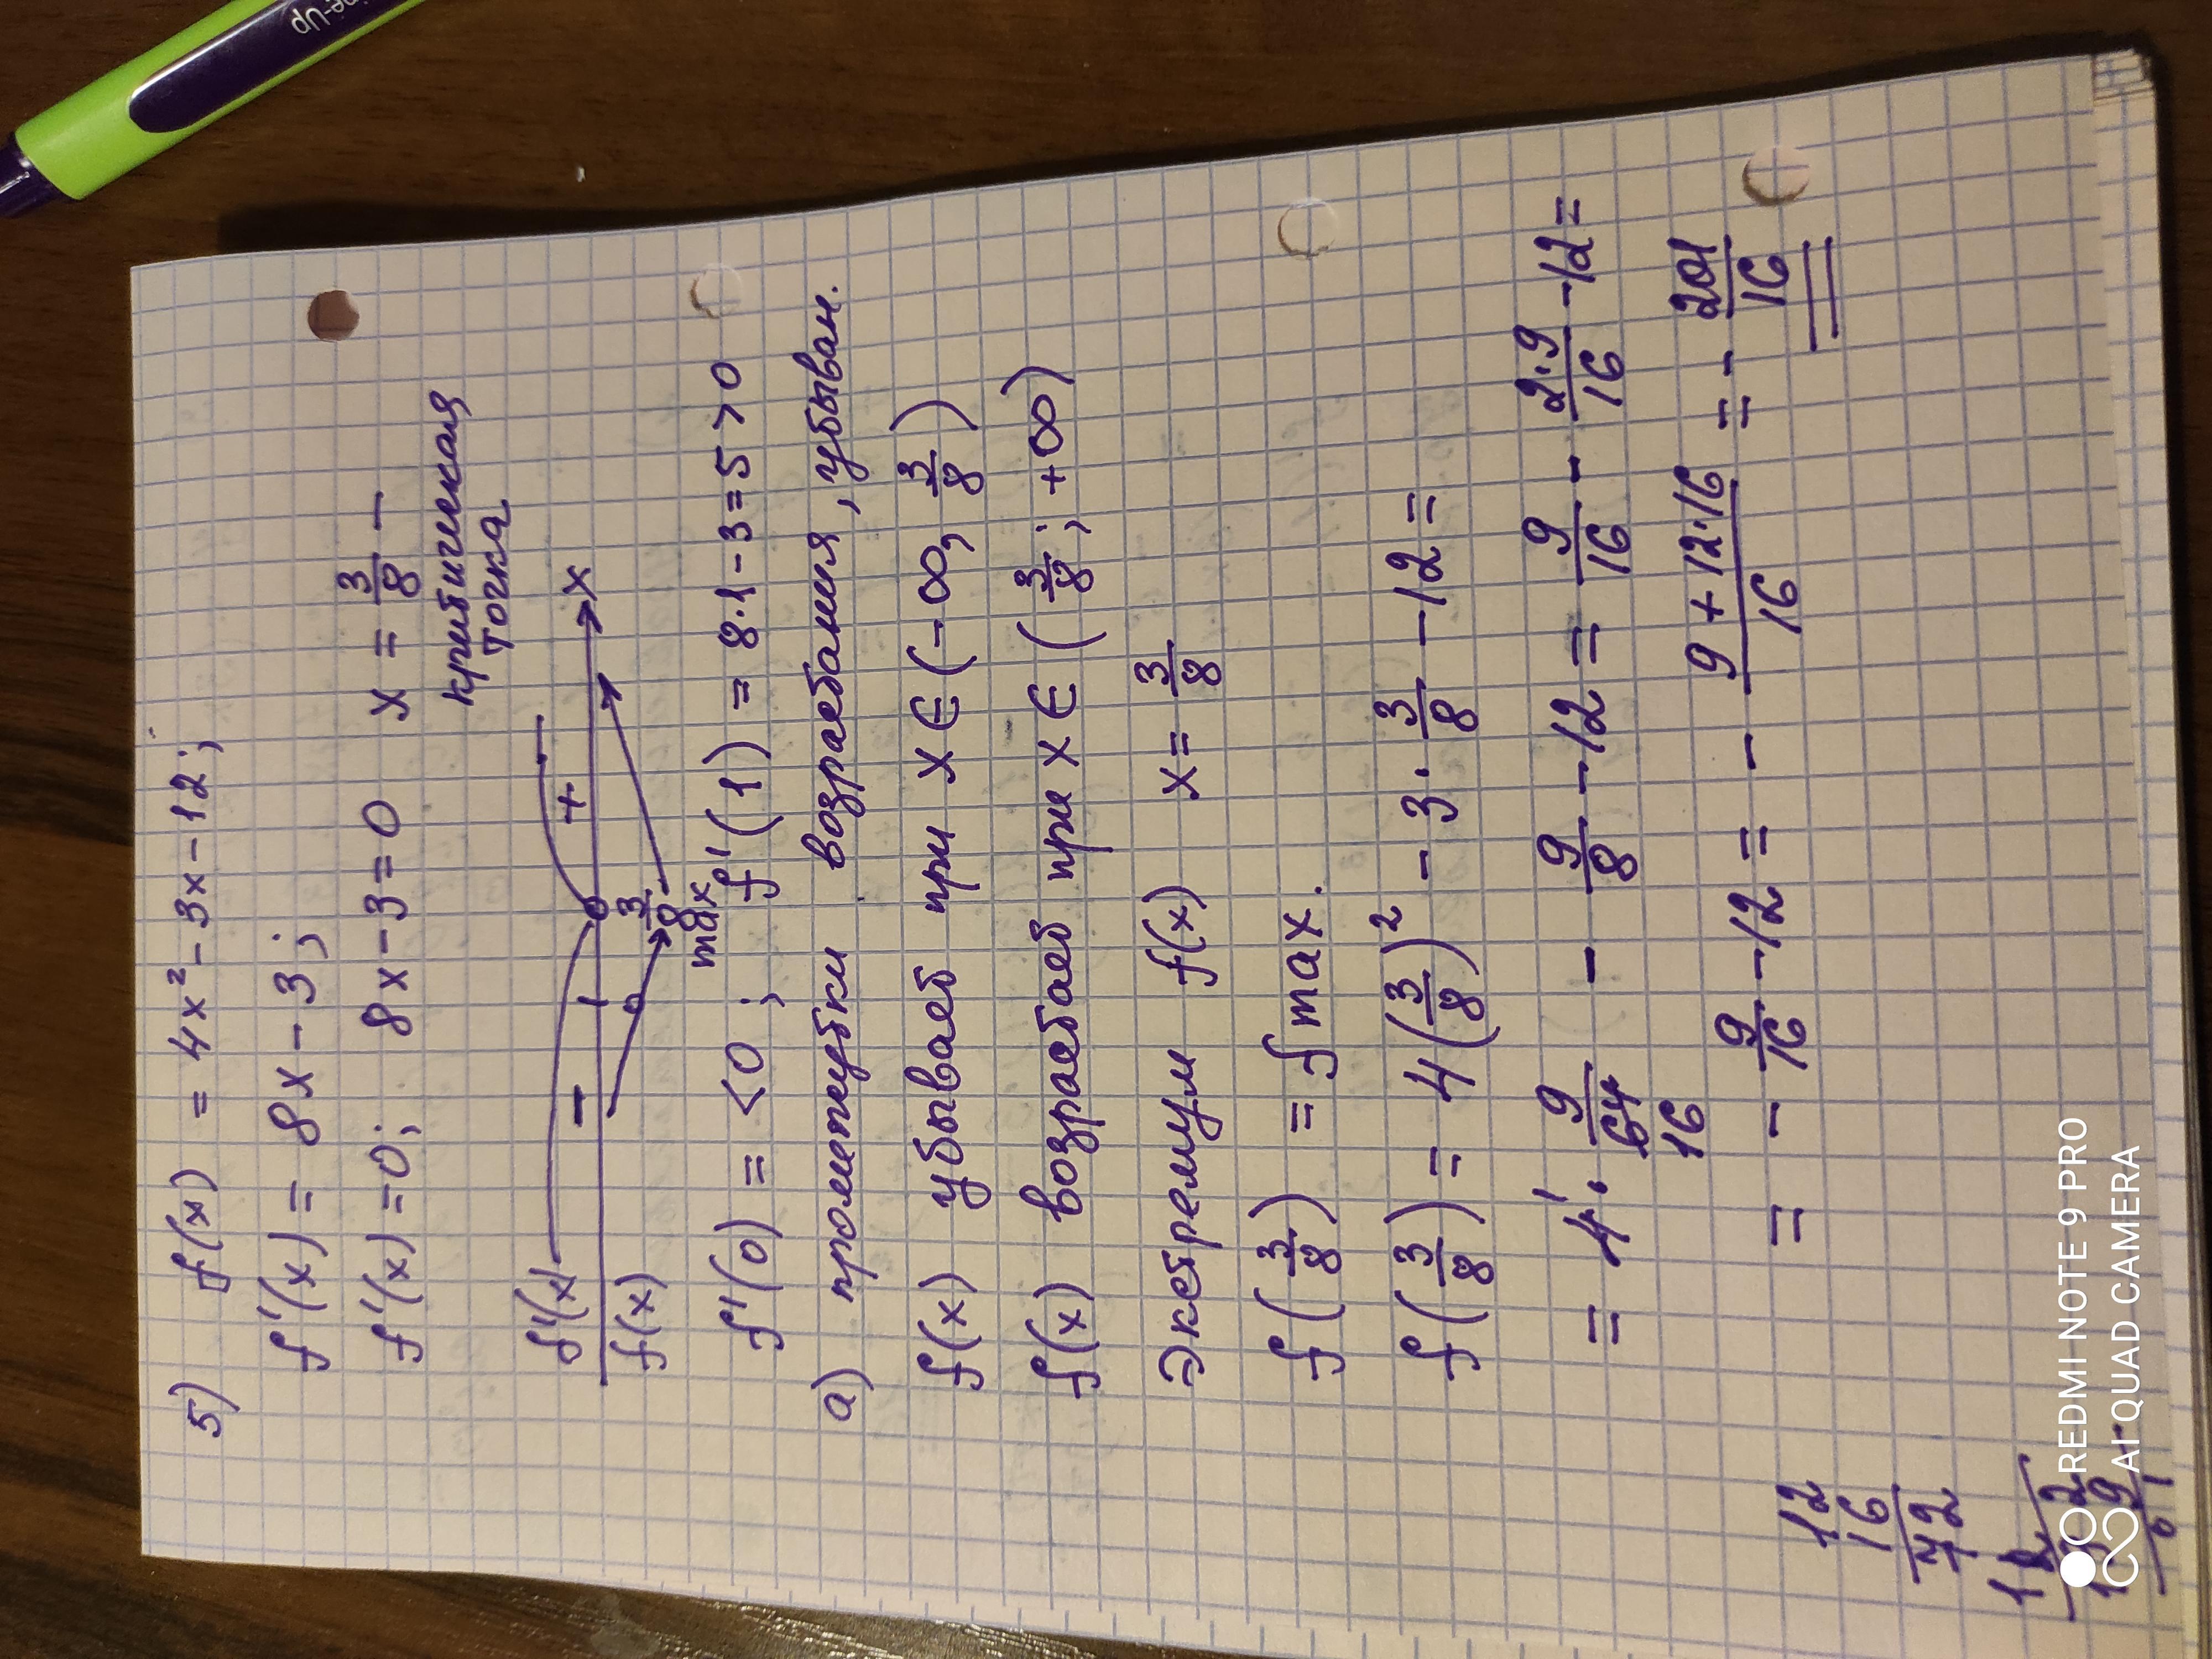 5) f(x) = 4x² - 3x - 12;
f'(x) = 8x - 3;
f'(x) = 0; 8x - 3 = 0 x = 3/8 -
критическая
точка
f'(x) - + x
f(x) 3/8
max
f'(0) = <0; f'(1) = 8·1-3=5>0
а) промежутки возрастания, убыван.
f(x) убывает при x∈(-∞, 3/8)
f(x) возрастает при x∈(3/8; +∞)
Экстремум f(x) x = 3/8
f(3/8) = fmax.
f(3/8) = 4(3/8)² - 3·3/8 - 12 =
= 4·9/64 - 9/8 - 12 = 9/16 - 2·9/16 - 12 =
1 16
= - 9/16 - 12 = - 9+12·16/16 = - 201/16
12
16
72
12
REDMI NOTE 9 PRO
AI QUAD CAMERA
ne-Up